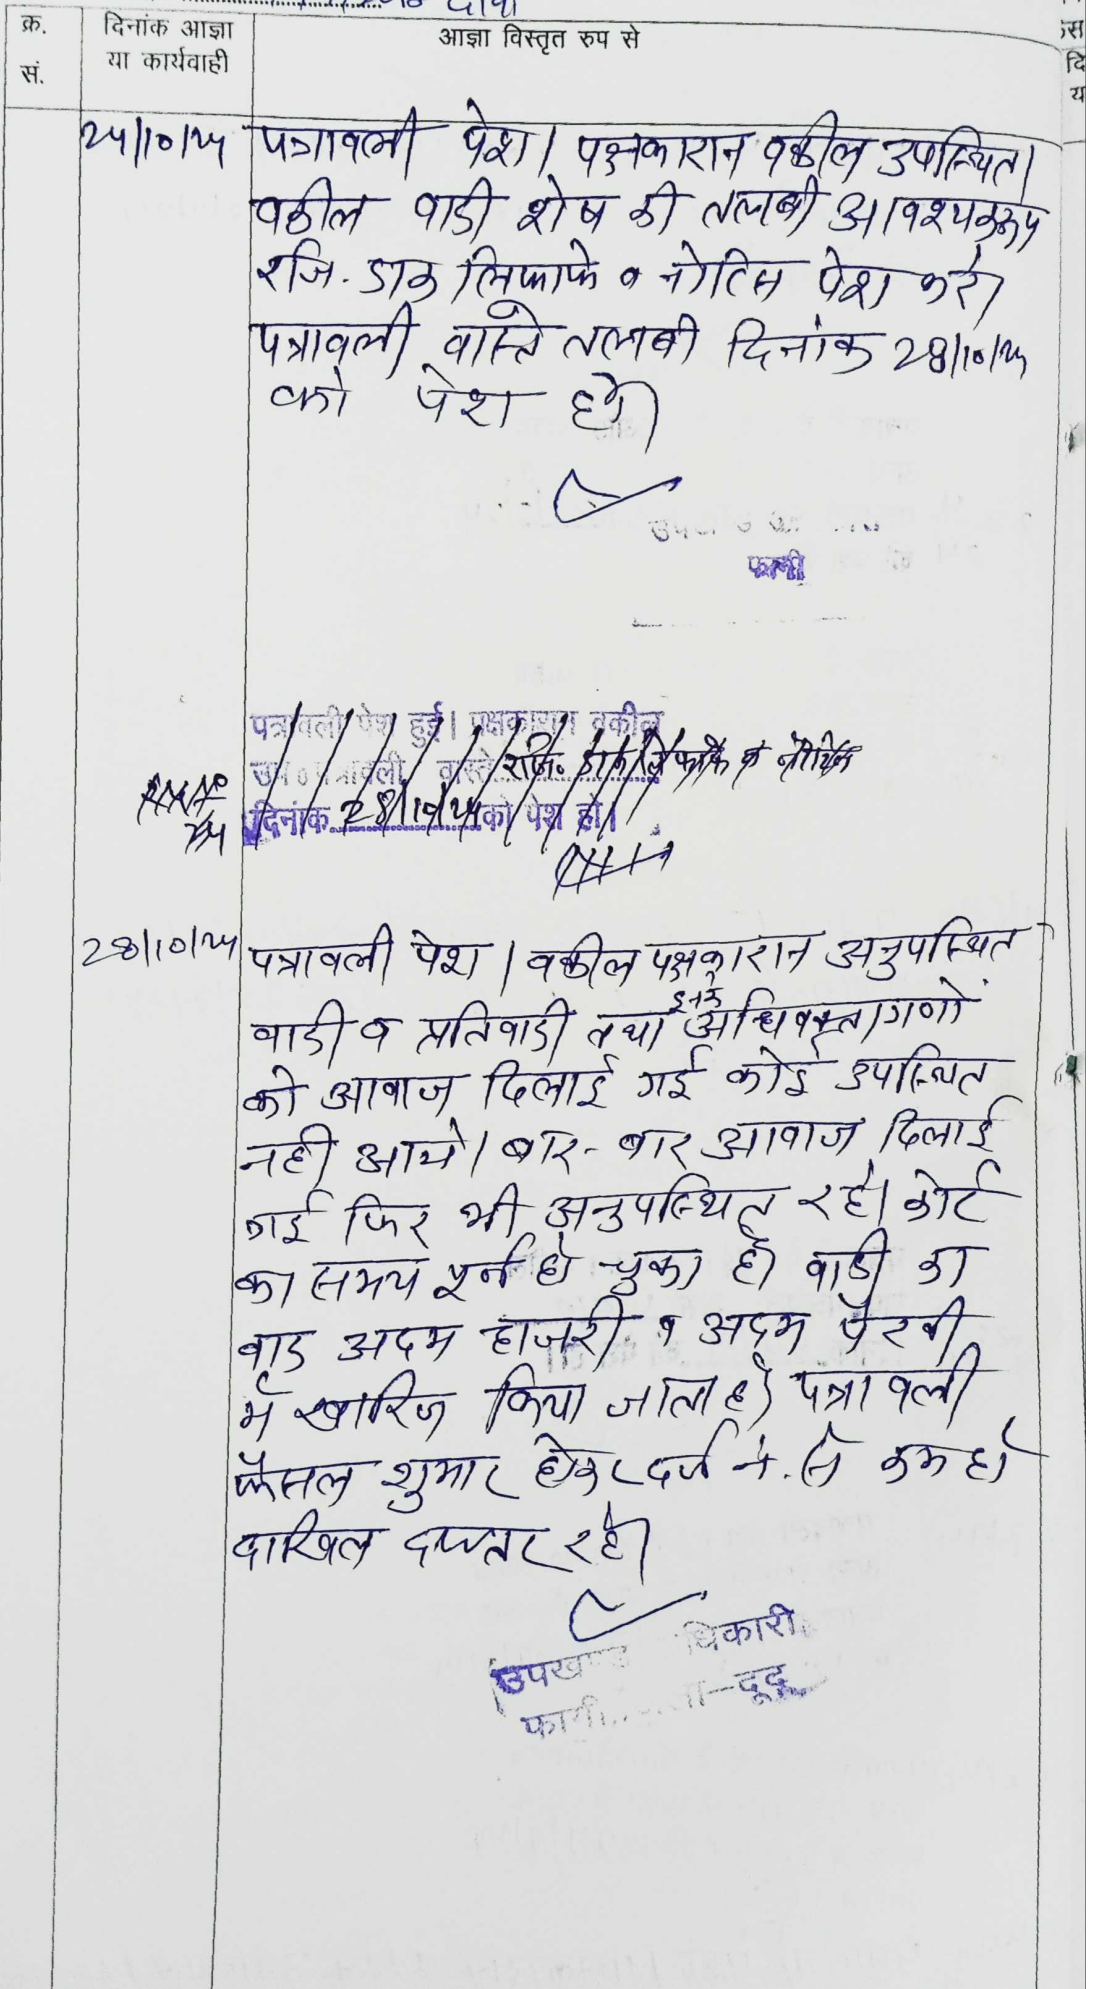 दावा
क्र.
सं.
दिनांक आज्ञा
या कार्यवाही
आज्ञा विस्तृत रुप से
24/10/24 पत्रावली पेश। पक्षकारान वकील उपस्थित।
वकील वादी शेष की तलबी आवश्यक रूप
रजि. डाक लिफाफे व नोटिस पेश करे।
पत्रावली वास्ते तलबी दिनांक 28/10/24
को पेश हो।
फागी
पत्रावली पेश हुई। पक्षकारान वकील
उप० पत्रावली वास्ते रजि. डाक लिफाफे व नोटिस
दिनांक 28/10/24 को पेश हो।
28/10/24 पत्रावली पेश। वकील पक्षकारान अनुपस्थित
वादी व प्रतिवादी तथा इनके अधिवक्तागणो
को आवाज दिलाई गई कोई उपस्थित
नही आये। बार-बार आवाज दिलाई
गई फिर भी अनुपस्थित रहे। कोर्ट
का समय पूर्न हो चुका है। वादी का
वाद अदम हाजरी व अदम पैरवी
मे खारिज किया जाता है। पत्रावली
फैसल शुमार होकर दर्ज नं. से कम हो
दाखिल दफ्तर रहे।
उपखण्ड धिकारी
फागी दूदू